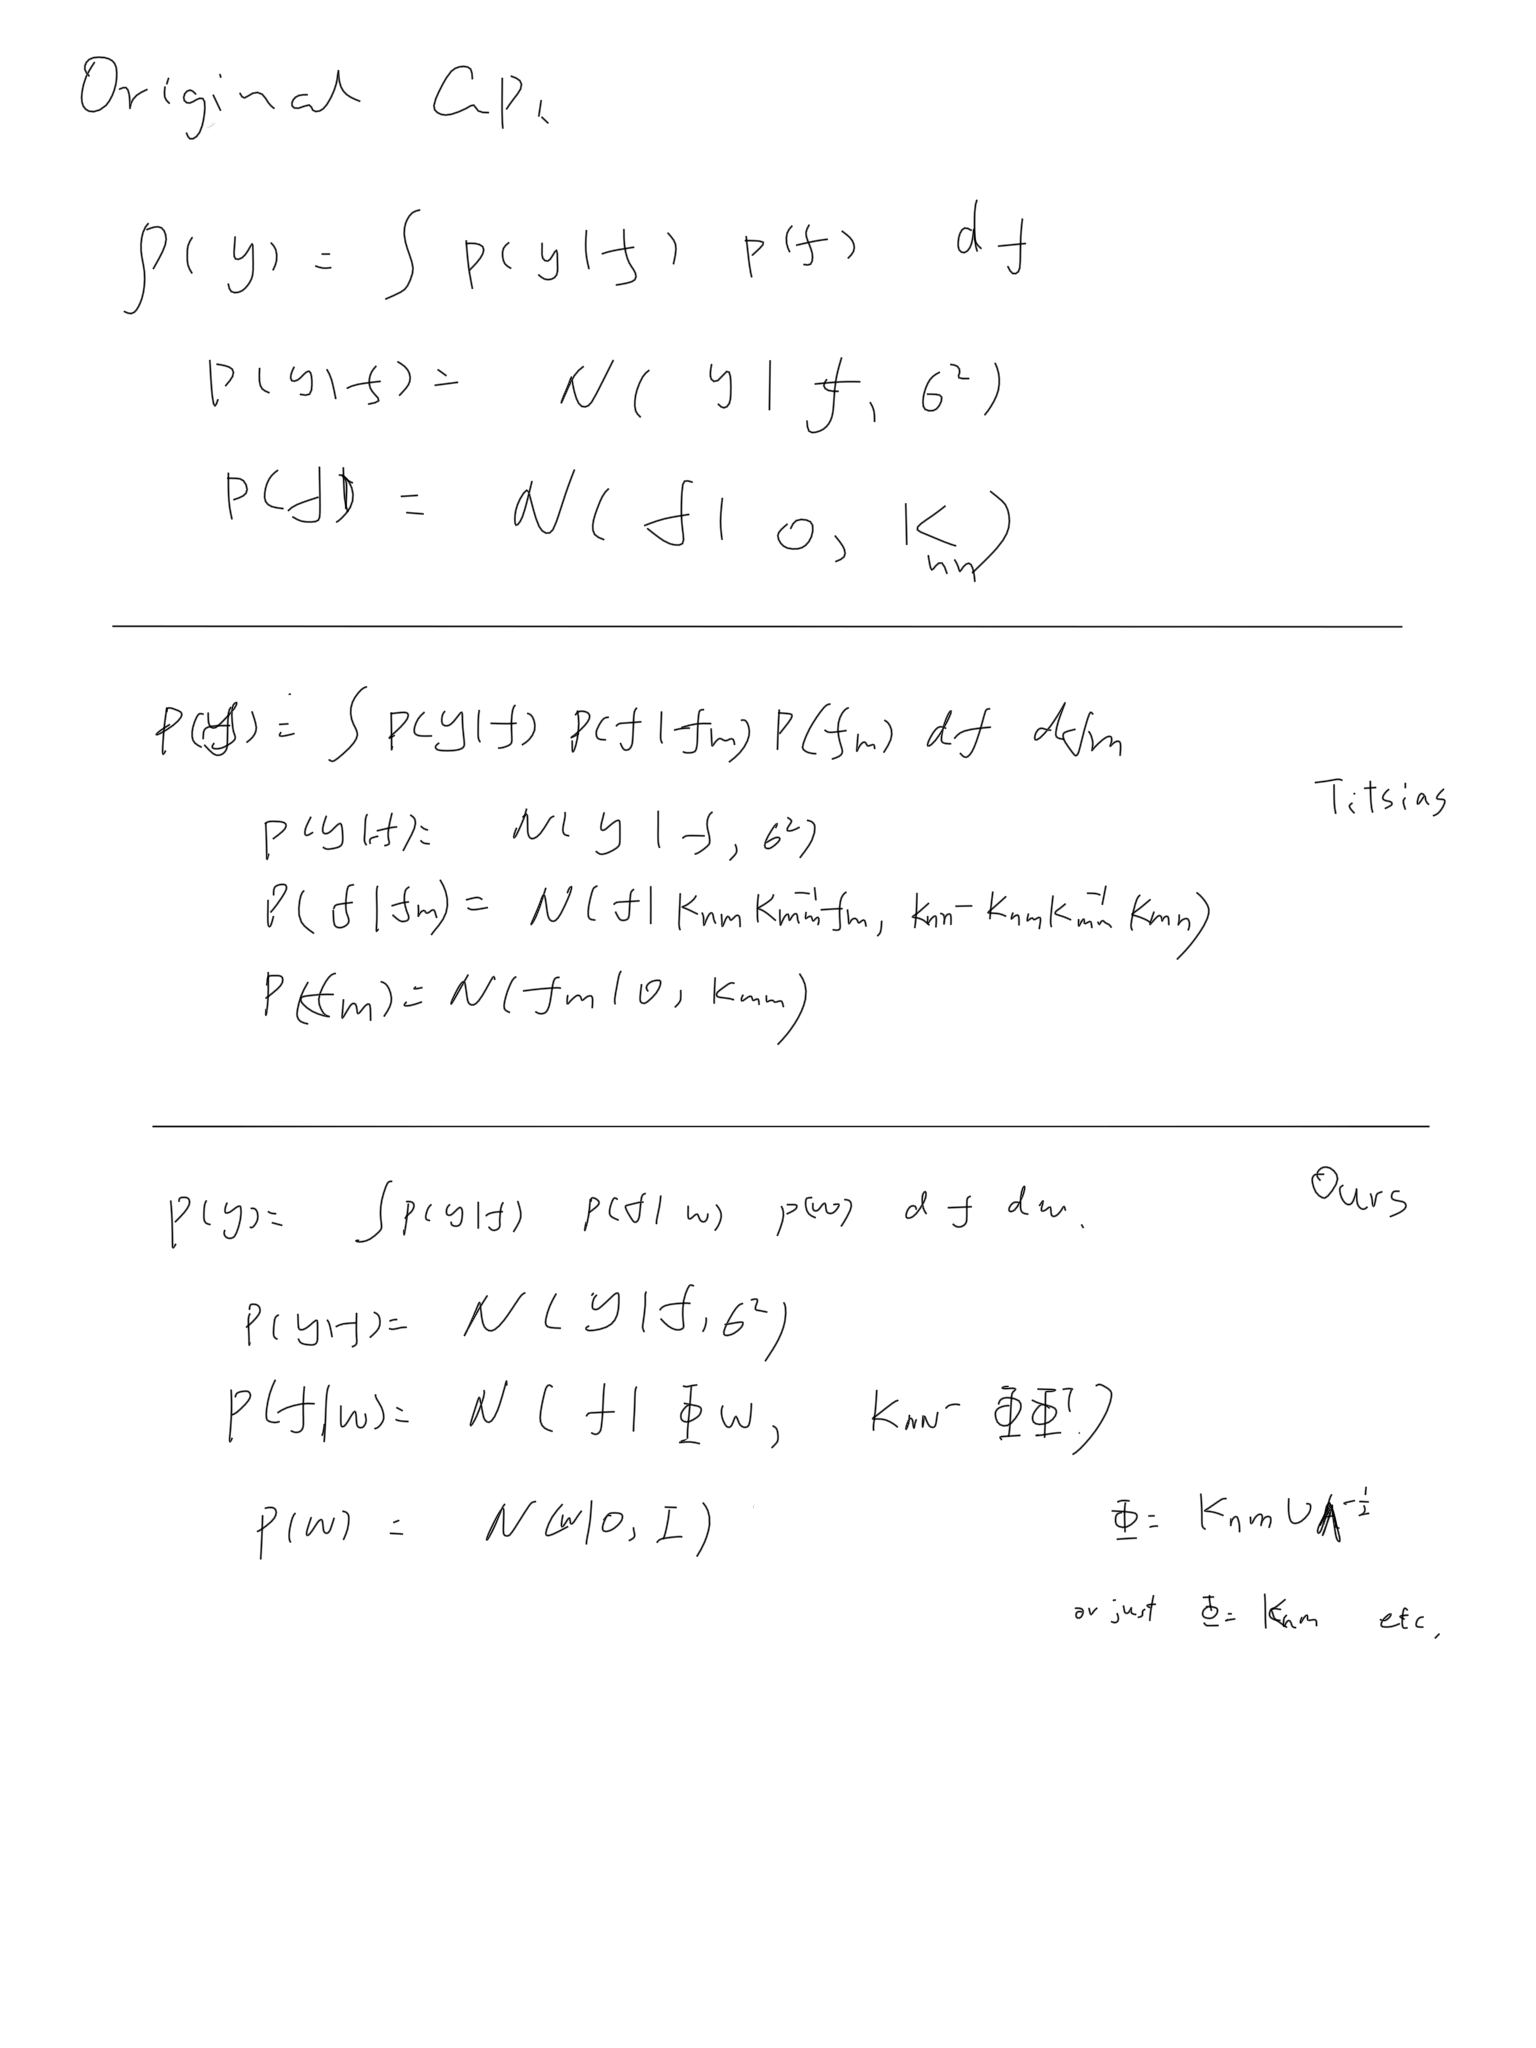 Original GP.
p(y) = ∫ p(y|f) p(f) df
p(y|f) = N( y | f, σ²)
p(f) = N( f | 0, K_nn)
p(y) = ∫ p(y|f) p(f|f_m) p(f_m) df df_m
Titsias
p(y|f) = N( y | f, σ²)
p(f|f_m) = N( f | K_nm K_mm^{-1} f_m, K_nn - K_nm K_mm^{-1} K_mn)
p(f_m) = N( f_m | 0, K_mm)
Ours
p(y) = ∫ p(y|f) p(f|w) p(w) df dw.
p(y|f) = N( y | f, σ²)
p(f|w) = N( f | Φ w, K_NN - ΦΦ^T)
p(w) = N(w|0, I)
Φ = K_nm U Λ^{-1/2}
or just Φ = K_nm etc.